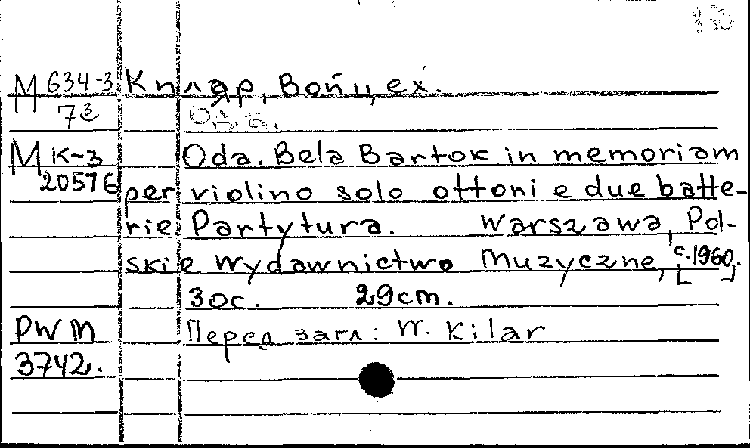 М 634-3 Киляр, Войцех.
73
Ода.
М К-3 Oda. Bela Bartok in memoriam
20576 per violino solo ottoni e due batte-
rie Partytura. Warszawa, Pol-
skie wydawnictwo Muzyczne, [c.1960].
30 с. 29 cm.
PWM Перед загл: W. Kilar
3742.